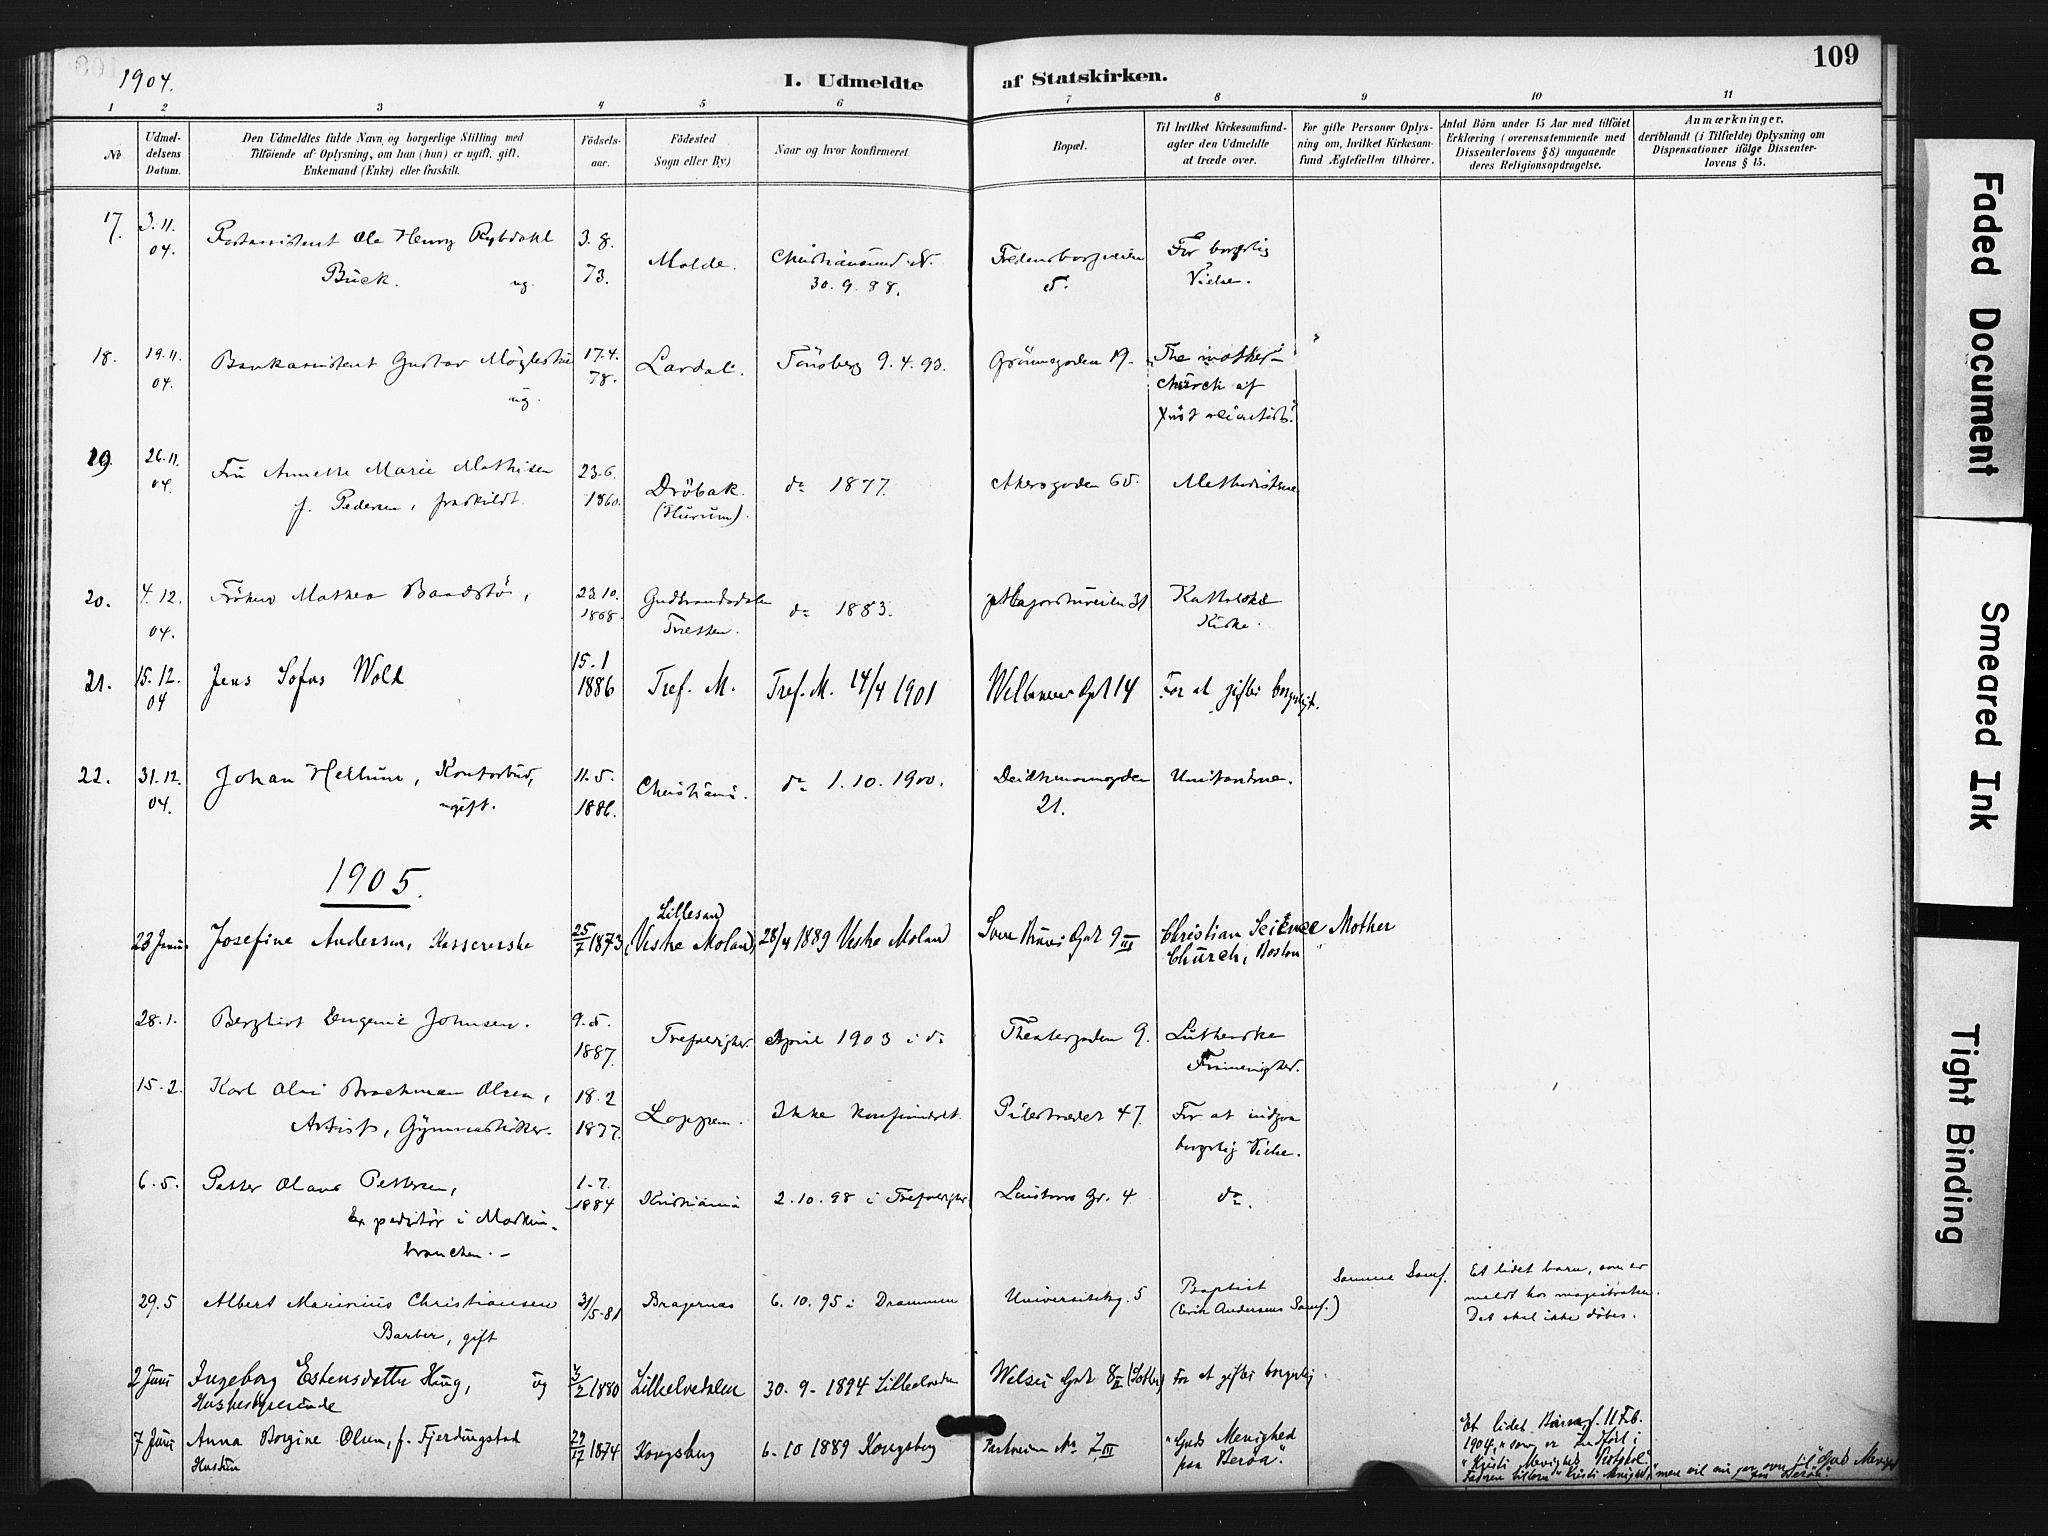 109
1904.
I. Udmeldte af Statskirken.
1 2 3 4 5 6 7 8 9 10 11
No
Udmel-
delsens
Datum.
Den Udmeldtes fulde Navn og borgerlige Stilling med
Tilföiende af Oplysning, om han (hun) er ugift, gift,
Enkemand (Enke) eller fraskilt.
Födsels-
aar.
Födested
Sogn eller By)
Naar og hvor konfirmeret.
Bopæl.
Til hvilket Kirkesamfund-
agter den Udmeldte
at træde over.
For gifte Personer Oplys-
ning om, hvilket Kirkesam-
fund Ægtefællen tilhörer.
Antal Börn under 15 Aar med tilföiet
Erklæring (overensstemmende med
Dissenterlovens § 8) angaaende
deres Religionsopdragelse.
Anmærkninger,
deriblandt (i Tilfælde) Oplysning om
Dispensationer ifölge Dissenter-
lovens § 15.
17. 3.11. 04.
Postassistent Ole Henry
Buck. ug.
3.8. 73.
Molde.
Christiansund N.
30.9.88.
Fredensborgveien
5.
For borgerlig
Vielse.
18. 19.11. 04.
Bankassistent Gustav
ug.
17.4. 78.
Lardal.
Tönsberg 9.4.93.
Grönnegaden 19.
"The mother-
church of
19 26.11. 04.
Fru Annette Marie Mathisen
f. Pedersen, fraskildt.
23.6. 1860.
Dröbak.
(Hurum).
do 1877.
Akersgaden 65.
Methodisterne
20. 4.12. 04.
Fröken Mathea Baadstö,
23.10. 1868.
Gudbrandsdalen
Tretten.
do 1883.
Majorstuveien 31
Katholske
Kirke.
21. 15.12. 04
Jens Sofus Wold
15.1 1886
Tref. M.
Tref. M. 14/4 1901
Gt 14
For at giftes borgerligt.
22. 31.12. 04.
Johan Hellum, Kontorbud,
ugift.
11.5. 1886.
Christiania.
do 1.10.1900.
Deichmannsgaden
21.
Unitarerne.
1905.
23 Janu.
Josefine Andersen, Kassererske
25/7 1873
Lillesand
(Vestre Moland)
28/4 1889 Vestre Moland
Gat 9 III
Christian Science Mother
Church, Boston
28.1.
Bergliot Eugenie Johnsen.
9.5. 1887.
Trefoldighed.
April 1903 i do
Theatergaden 9.
Lutherske
Frimenighed.
15.2.
Karl Olai Brockman Olsen,
Artist, Gymnastiker.
18.2 1877.
Loppen.
Ikke konfirmeret
Pilestrædet 47.
For at indgaa
borgerlig Vielse.
6.5.
Petter Olaus Pettersen,
Expeditör i Maskin-
branchen. –
1.7. 1884
Kristiania
2.10.98 i Trefoldighed
gr. 4
do.
29.5
Albert Marinius Christiansen
Barber, gift
31/5-81
Bragernæs
6.10.95 i Drammen
Universitetsg. 5
Baptist
(Erik Andersens Samf.)
Samme Samf.
Et lidet barn, som er
meldt hos magistraten.
Det skal ikke döbes.
2 Juni
Ingeborg Estensdatter Haug, ug
Husbestyrerinde
1880
Lilleelvedalen
30.9-1894 Lilleelvedalen
Gat 8 II
For at giftes borgerlig.
7 Juni
Anna Borgine Olsen, f. Fjerdingstad
Hustru
29/12 1874
Kongsberg
6-10 1889 Kongsberg
Parkveien No 7, III
"Guds Menighed
paa Berøa".
Et lidet Barn f. 11 Feb.
1904, som er indført i
"Kristi Menigheds Protokol".